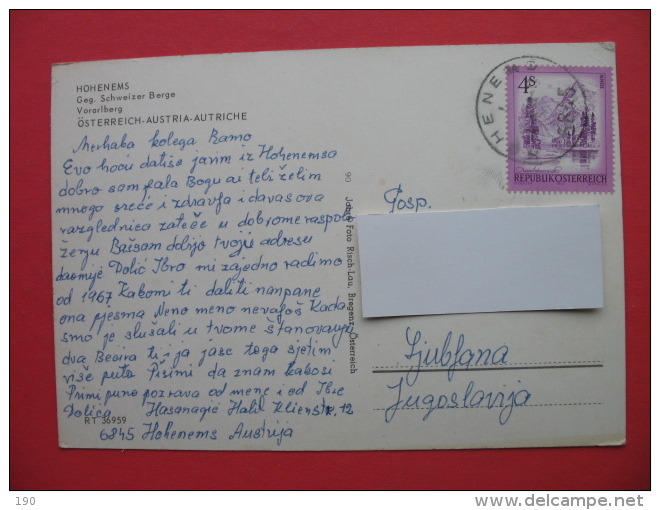 HOHENEMS
Geg. Schweizer Berge
Vorarlberg
ÖSTERREICH-AUSTRIA-AUTRICHE
Merhaba kolega Ramo
Evo hoću datiše javim iz Hohenemsa
dobro sam fala Bogu ai tebi želim
mnogo sreće i zdravlja i davas ova
razglednica zateče u dobrome raspolo
ženju Baišsam dobijo tvoju adresu
daomije Dolić Ibro mi zajedno radimo
od 1967 Kakomi ti daliti nanpane
ona pjesma Neno meno nevaloš Kada
smo je slušali u tvome štanovanju
dva Bećira ti i ja jase toga sjetim
više puta Pišimi da znam kakosi
Primi puno pozrava od mene i od Ibre
Dolića Hasanagić Halil Klienstr. 12
6845 Hohenems Austrija
RT 36959
90 Foto Risch-Lau, Bregenz, Österreich
HOHENEMS
4S
REPUBLIK ÖSTERREICH
Gosp.
Ljubljana
Jugoslavija
190
delcampe.net